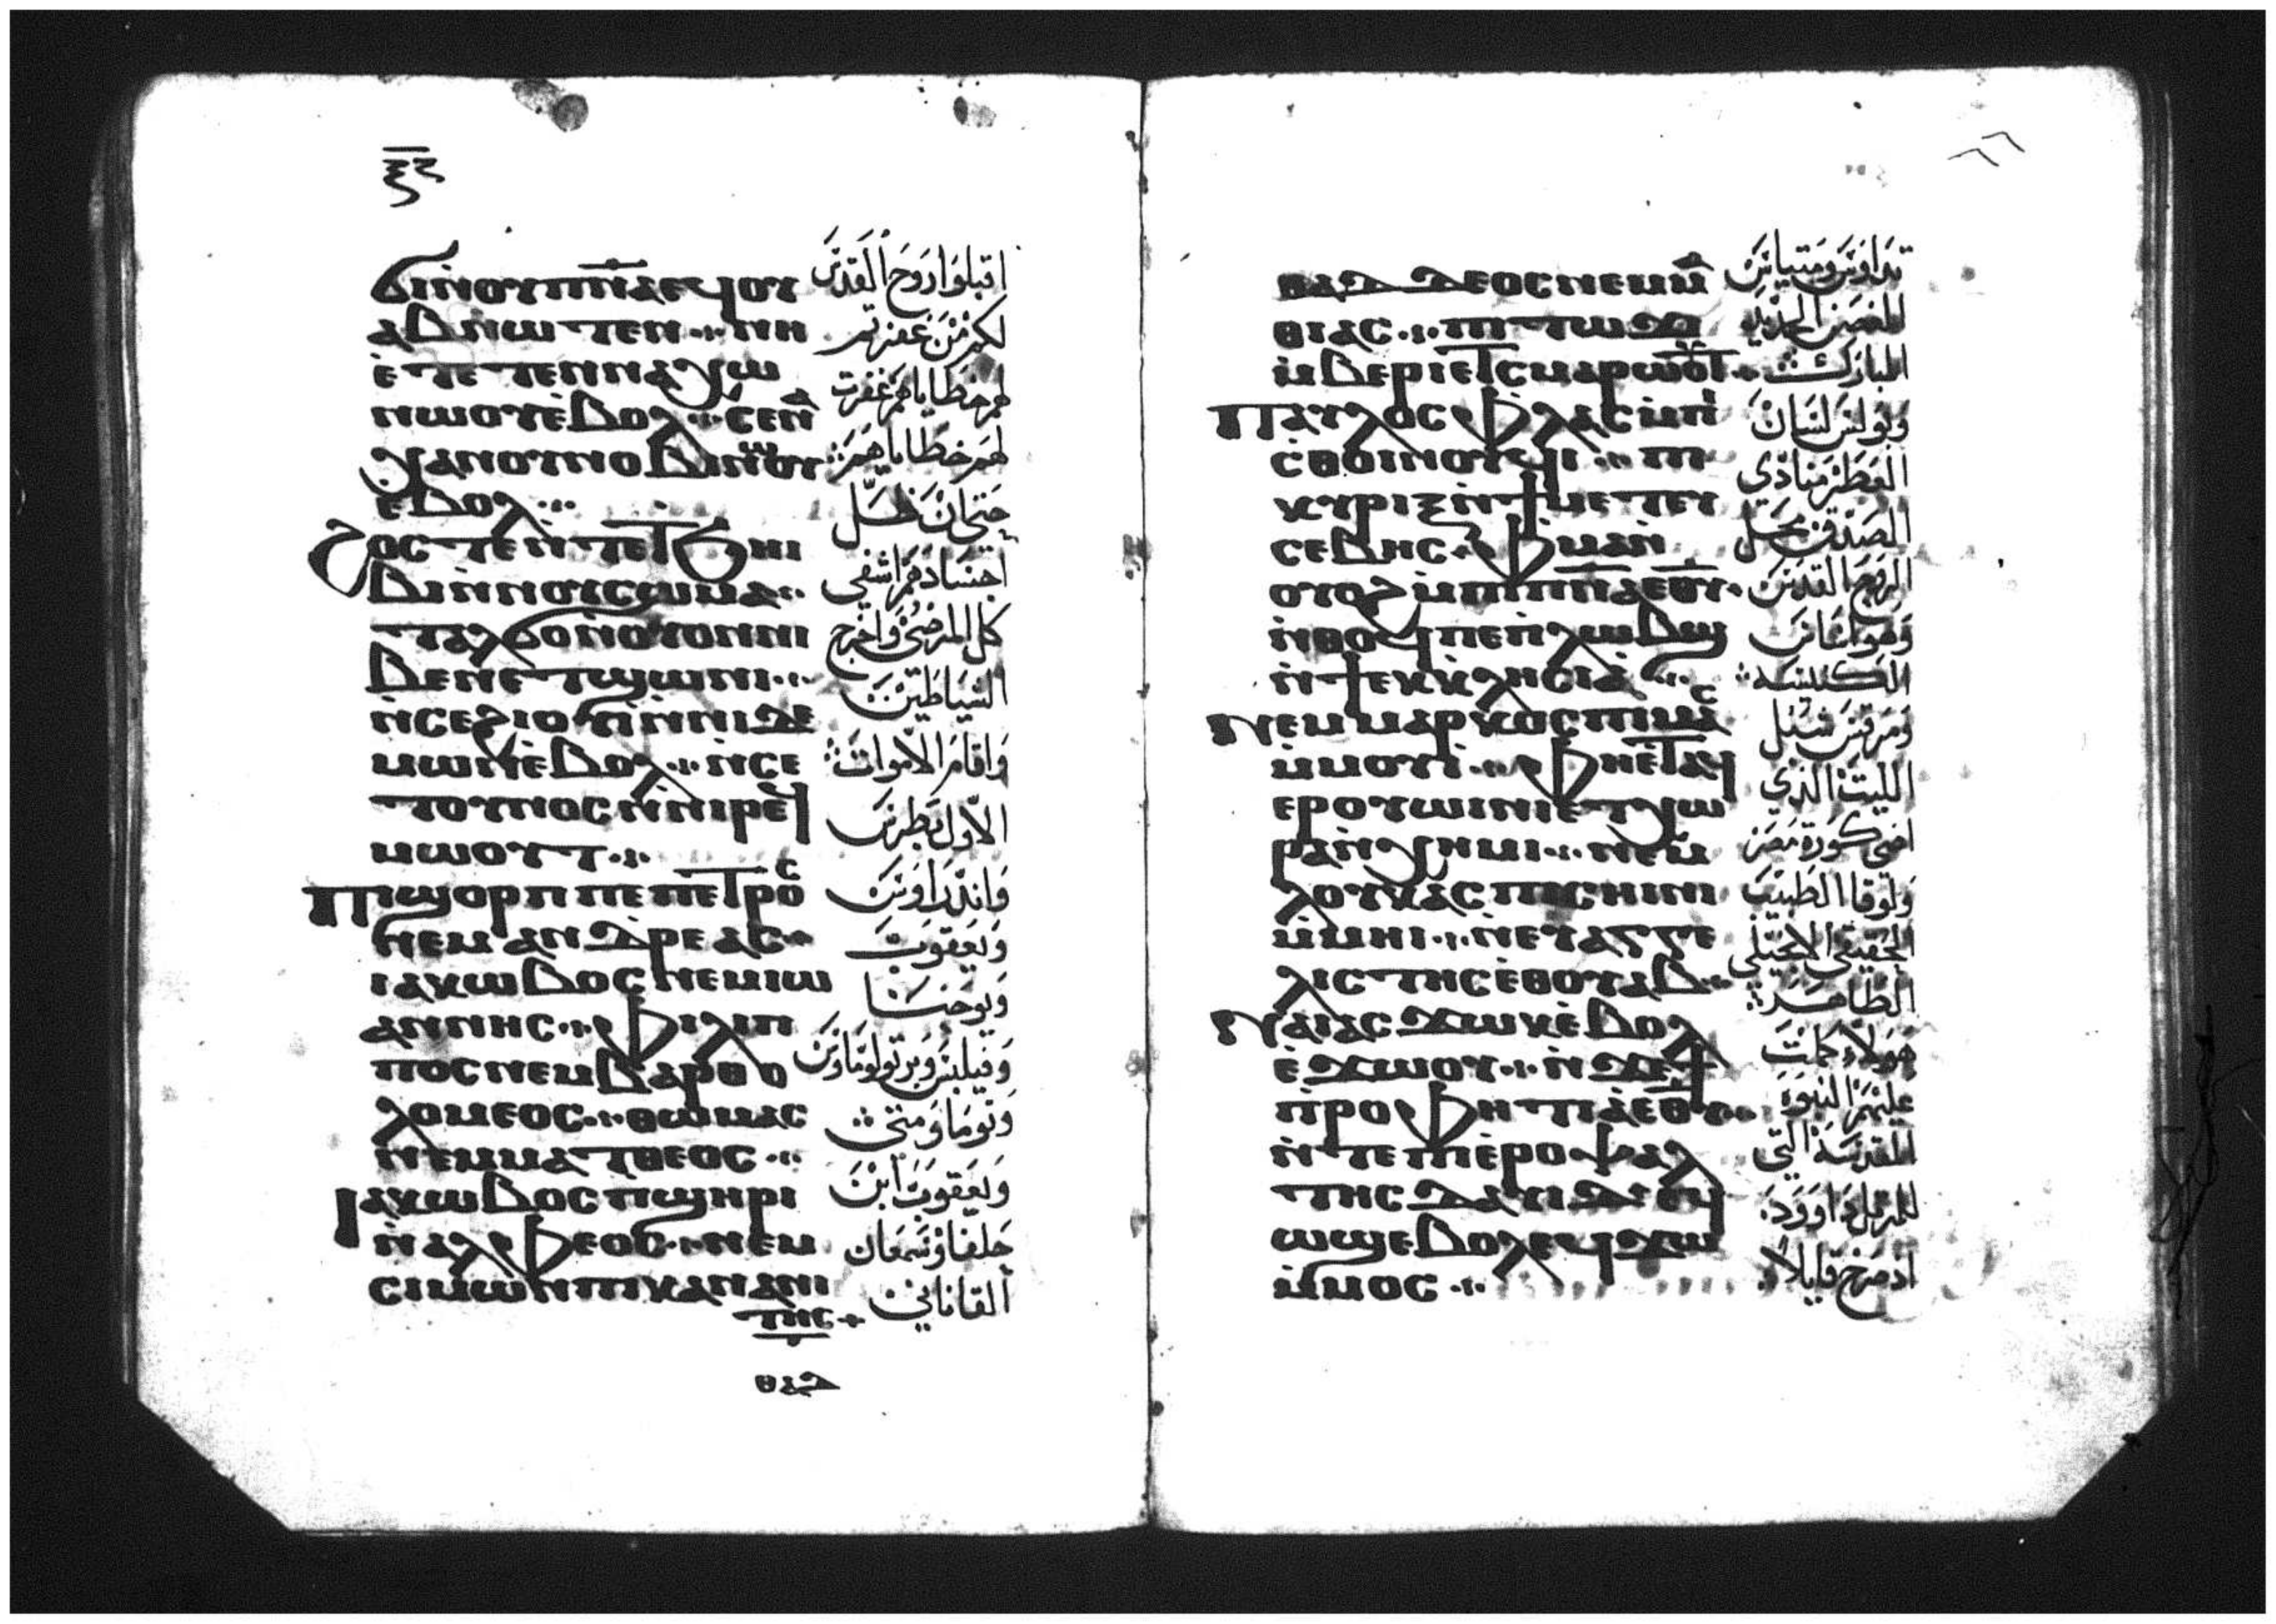 ϭⲓⲛⲟⲩⲡⲛ̅ⲁⲉϥⲟⲩ
ⲁⲃⲛⲱⲧⲉⲛ ⲛⲏ
ⲉ̀ⲧⲉⲧⲉⲛⲛⲁⲭⲱ
ⲛⲱⲟⲩⲉ̀ⲃⲟⲗ ⲥⲉⲛⲁ
ⲭⲁⲛⲟⲩⲛⲟⲃⲓⲛⲱⲟⲩ
ⲉ̀ⲃⲟⲗ
ϩⲟⲥⲧⲉⲛ̀ⲧⲉⲧϭⲏⲓ
ⲃⲓⲛ̀ⲛⲟⲩⲥⲱⲙⲁ
ⲧⲁⲗϭⲟⲛ̀ⲟⲩⲟⲛⲛⲓ
ⲃⲉⲛⲉⲧϣⲱⲛⲓ
ⲛ̀ⲥⲉϩⲓⲟⲩⲓ̀ⲛ̀ⲛⲓⲇⲉ
ⲙⲱⲛⲉ̀ⲃⲟⲗ ⲛ̀ⲥⲉ
ⲧⲟⲩⲛⲟⲥⲛ̀ⲛⲓⲣⲉϥ
ⲙⲱⲟⲩⲧ
ⲡⲓϣⲟⲣⲡⲡⲉⲡⲉⲧⲣⲟⲥ
ⲛⲉⲙⲁⲛⲇⲣⲉⲁⲥ
ⲓⲁⲕⲱⲃⲟⲥⲛⲉⲙⲓⲱ
ⲁⲛⲛⲏⲥ ⲫⲓⲗⲓⲡ
ⲡⲟⲥⲛⲉⲙⲃⲁⲣⲑⲟ
ⲗⲟⲙⲉⲟⲥ ⲑⲱⲙⲁⲥ
ⲛⲉⲙⲙⲁⲧⲑⲉⲟⲥ
ⲓⲁⲕⲱⲃⲟⲥⲡϣⲏⲣⲓ
ⲛ̀ⲁⲗⲫⲉⲟⲥ ⲛⲉⲙ
ⲥⲓⲙⲱⲛⲡⲓⲕⲁⲛⲁⲛⲓ
ⲧⲏⲥ
ⲑⲁⲇ
اقبلوا روح القدس
لكم من غفرتم
لهم خطاياهم غفرت
لهم خطاياهم
حتي ان ظل
اجسادهم اشفي
كل المرضي واخرج
الشياطين
واقام الاموات
الاول بطرس
واندراوس
ويعقوب
ويوحنا
وفيلبس وبرتولوماوس
وتوما ومتي
ويعقوب ابن
حلفا وسمعان
القاناني
ⲑⲁⲇⲇⲉⲟⲥⲛⲉⲙⲙⲁ
ⲑⲓⲁⲥ ⲡⲓⲧⲱϫ
ⲙ̀ⲃⲉⲣⲓⲉⲧⲥⲙⲁⲣⲱⲟⲩⲧ
ⲡⲁⲩⲗⲟⲥⲫⲗⲁⲥⲙ̀ⲡⲓ
ⲥⲑⲟⲓⲛⲟⲩϥⲓ ⲡⲓ
ⲕⲩⲣⲓⲝⲛ̀ϯⲙⲉⲧⲉⲩ
ⲥⲉⲃⲏⲥ ⲫⲙⲁⲛ̀
ⲟⲩⲟϩⲙ̀ⲡⲓⲡⲛ̅ⲁⲉⲑⲩ
ⲛ̀ⲑⲟϥⲡⲉⲡ̀ⲗⲱⲃϣ
ⲛ̀ϯⲉⲕⲕⲗⲏⲥⲓⲁ
ⲛⲉⲙⲙⲁⲣⲕⲟⲥⲡⲓⲙⲁⲥ
ⲙ̀ⲙⲟⲩⲓ̀ ⲫⲏⲉⲧⲁϥ
ⲉⲣⲟⲩⲱⲓⲛⲓⲉⲧⲭⲱ
ⲣⲁⲛ̀ⲭⲏⲙⲓ ⲛⲉⲙ
ⲗⲟⲩⲕⲁⲥⲡⲓⲥⲏⲓⲛⲓ
ⲙ̀ⲙⲏⲓ ⲛ̀ⲉⲩⲁⲅⲅⲉ
ⲗⲓⲥⲧⲏⲥⲉ̀ⲑⲟⲩⲁⲃ
ⲛⲁⲓⲁⲥϫⲱⲕⲉ̀ⲃⲟⲗ
ⲉ̀ϫⲱⲟⲩ ⲛ̀ϫⲉϯ
ⲡ̀ⲣⲟⲫⲏⲧⲓⲁⲉⲑⲩ
ⲛ̀ⲧⲉⲡⲓⲉ̀ⲣⲟⲯⲁⲗ
ⲧⲏⲥⲇⲁⲩⲓⲇⲉϥ
ⲱϣⲉⲃⲟⲗⲉϥϫⲱ
ⲙ̀ⲙⲟⲥ
تداوس ومتياس
الغصن الجديد
المبارك
وبولس لسان
العطر منادي
الصدق محل
الروح القدس
وهو لسان
الكنيسة
ومرقس شبل
الليث الذي
اضي كورة مصر
ولوقا الطبيب
الحقيقي الانجيلي
الطاهر
هولاء كملت
عليهم النبوه
المقدسة التي
للمرتل داوود
اذ صرخ قايلا